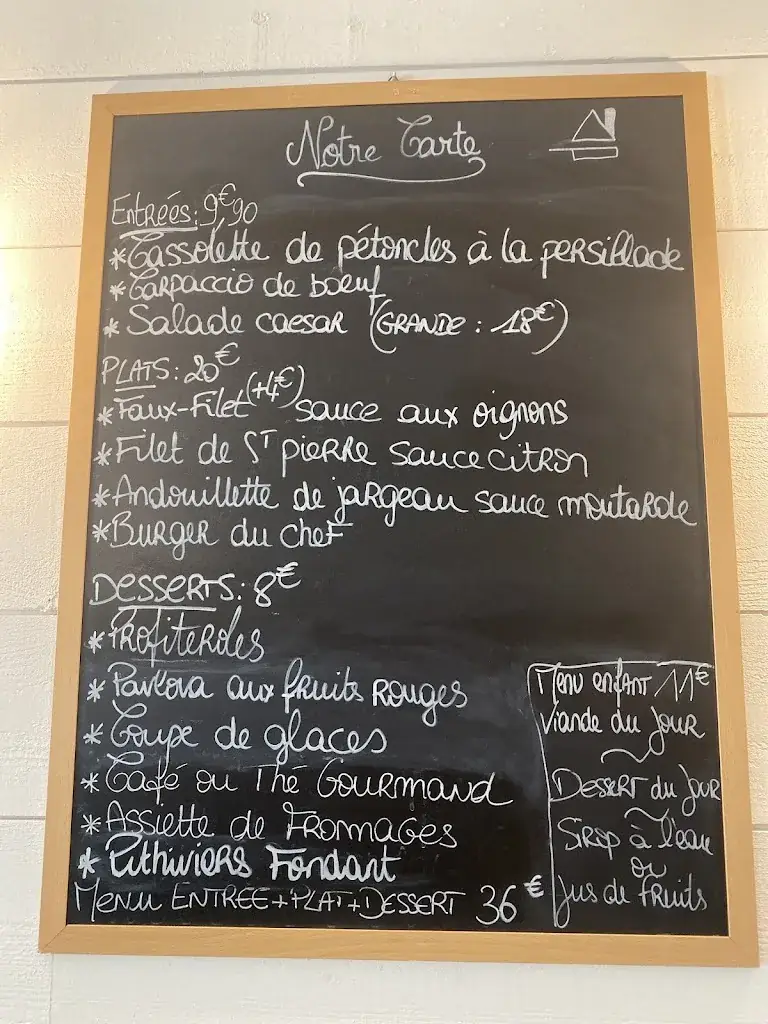 Notre Carte
Entrées: 9€90
*Cassolette de pétoncles à la persillade
*Carpaccio de bœuf
*Salade caesar (GRANDE : 18€)
PLATS: 20€
*Faux-Filet (+4€) sauce aux oignons
*Filet de ST pierre sauce citron
*Andouillette de jargeau sauce moutarde
*Burger du chef
DESSERTS: 8€
*Profiteroles
*Pavlova aux fruits rouges
*Coupe de glaces
*Café ou Thé Gourmand
*Assiette de Fromages
*Pithiviers Fondant
Menu ENTREE+PLAT+DESSERT 36€
Menu enfant 11€
Viande du Jour
Dessert du Jour
Sirop à l'eau
ou
Jus de fruits